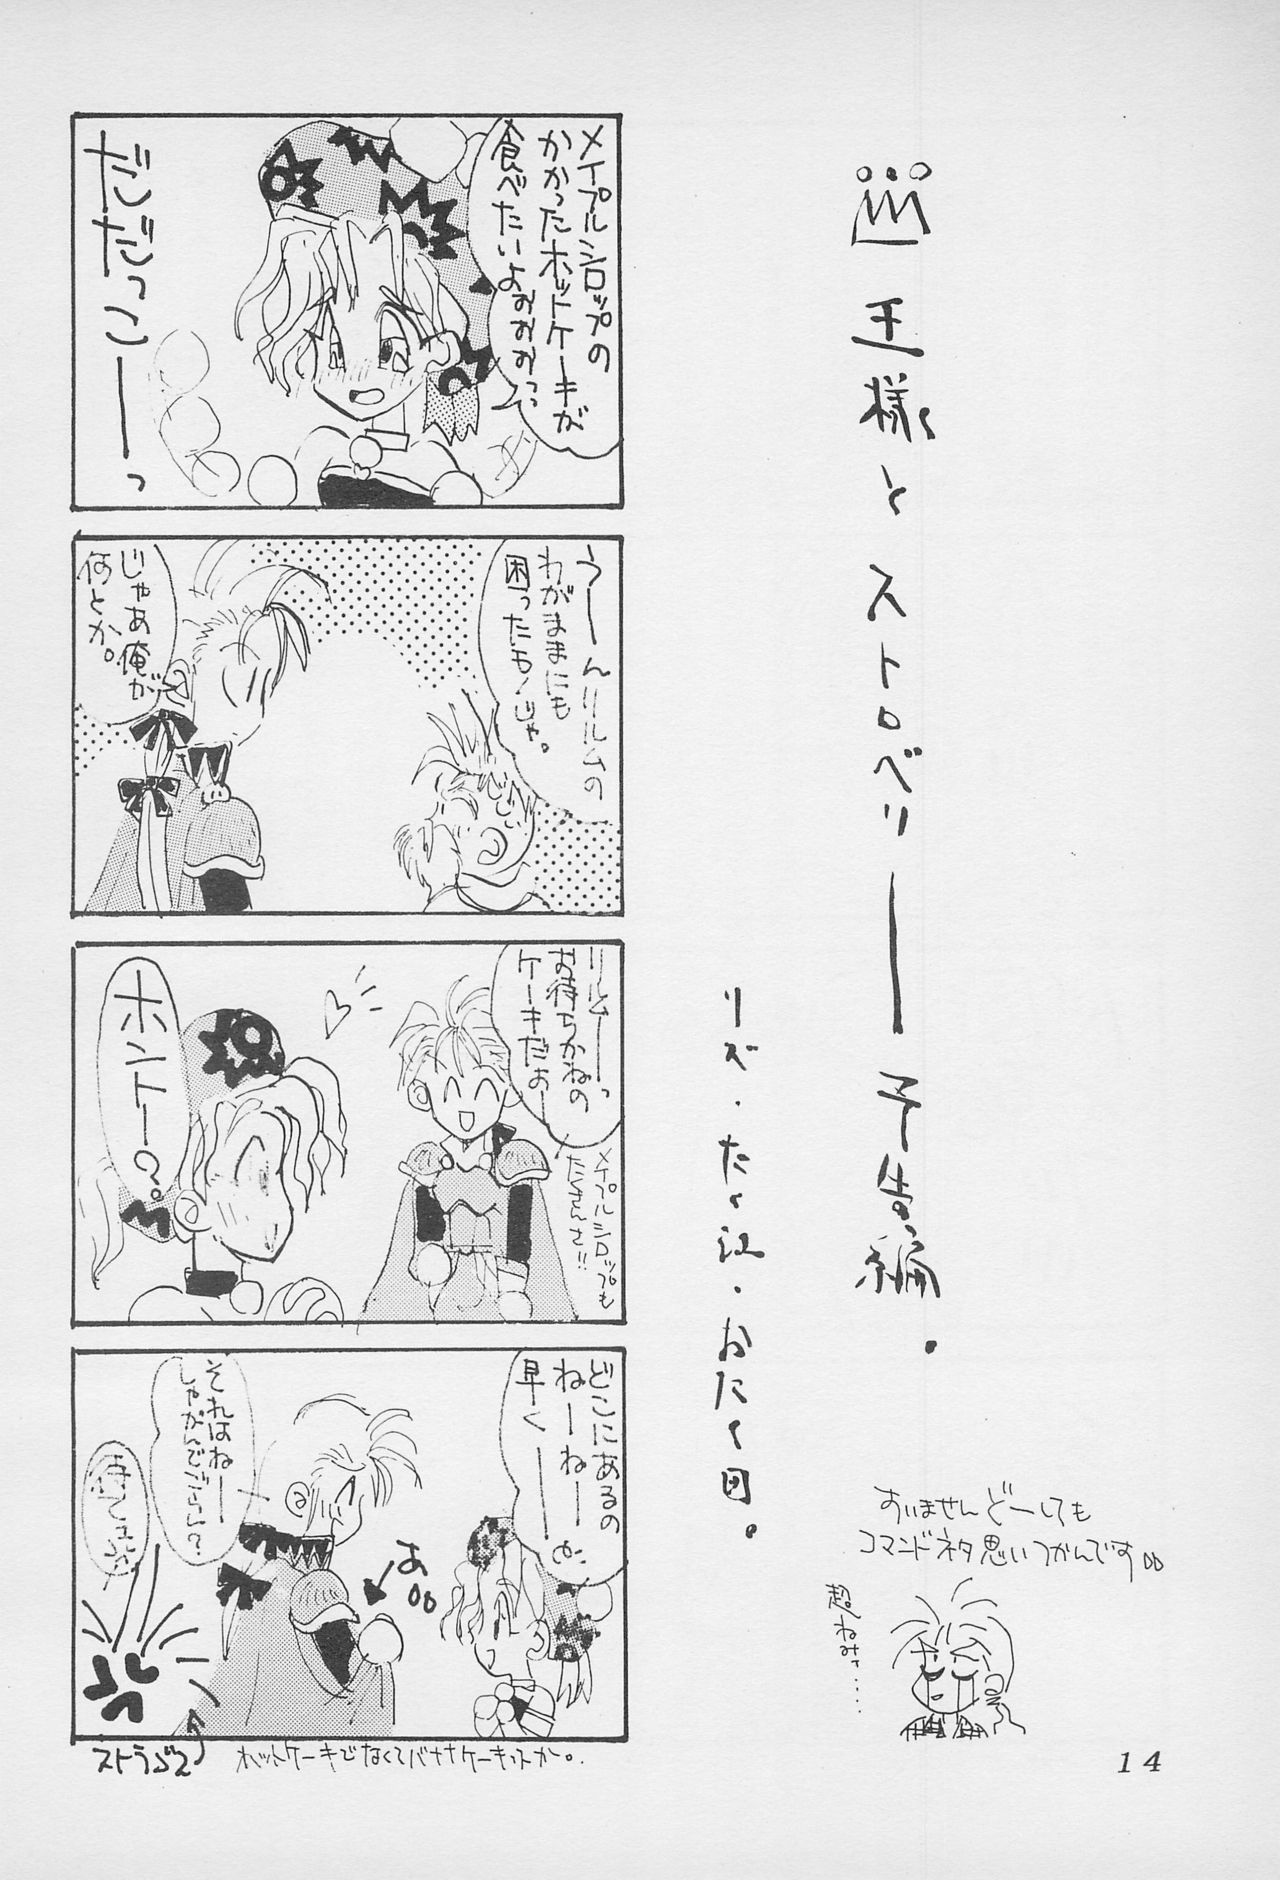 王様とストロベリー予告編。
リズ・たく江・おたく田。
すいませんどーしても
コマンドネタ思いつかんです
超ねみぃ……
メイプルシロップの
かかったホットケーキが
食べたいよぉぉぉっ
だだっこーーっ
うーんリルムの
わがままにも
困ったモノじゃ。
じゃあ俺が
何とか。
リルムーっ
お待ちかねの
ケーキだぉー
メイプルシロップも
たくさんさ!!
ホントー?
どこにあるの
ねーねー
早くーー
あ
それはねー
しゃがんでごらん?
ストラぶん
ホットケーキでなくてバナナケーキっか。
14